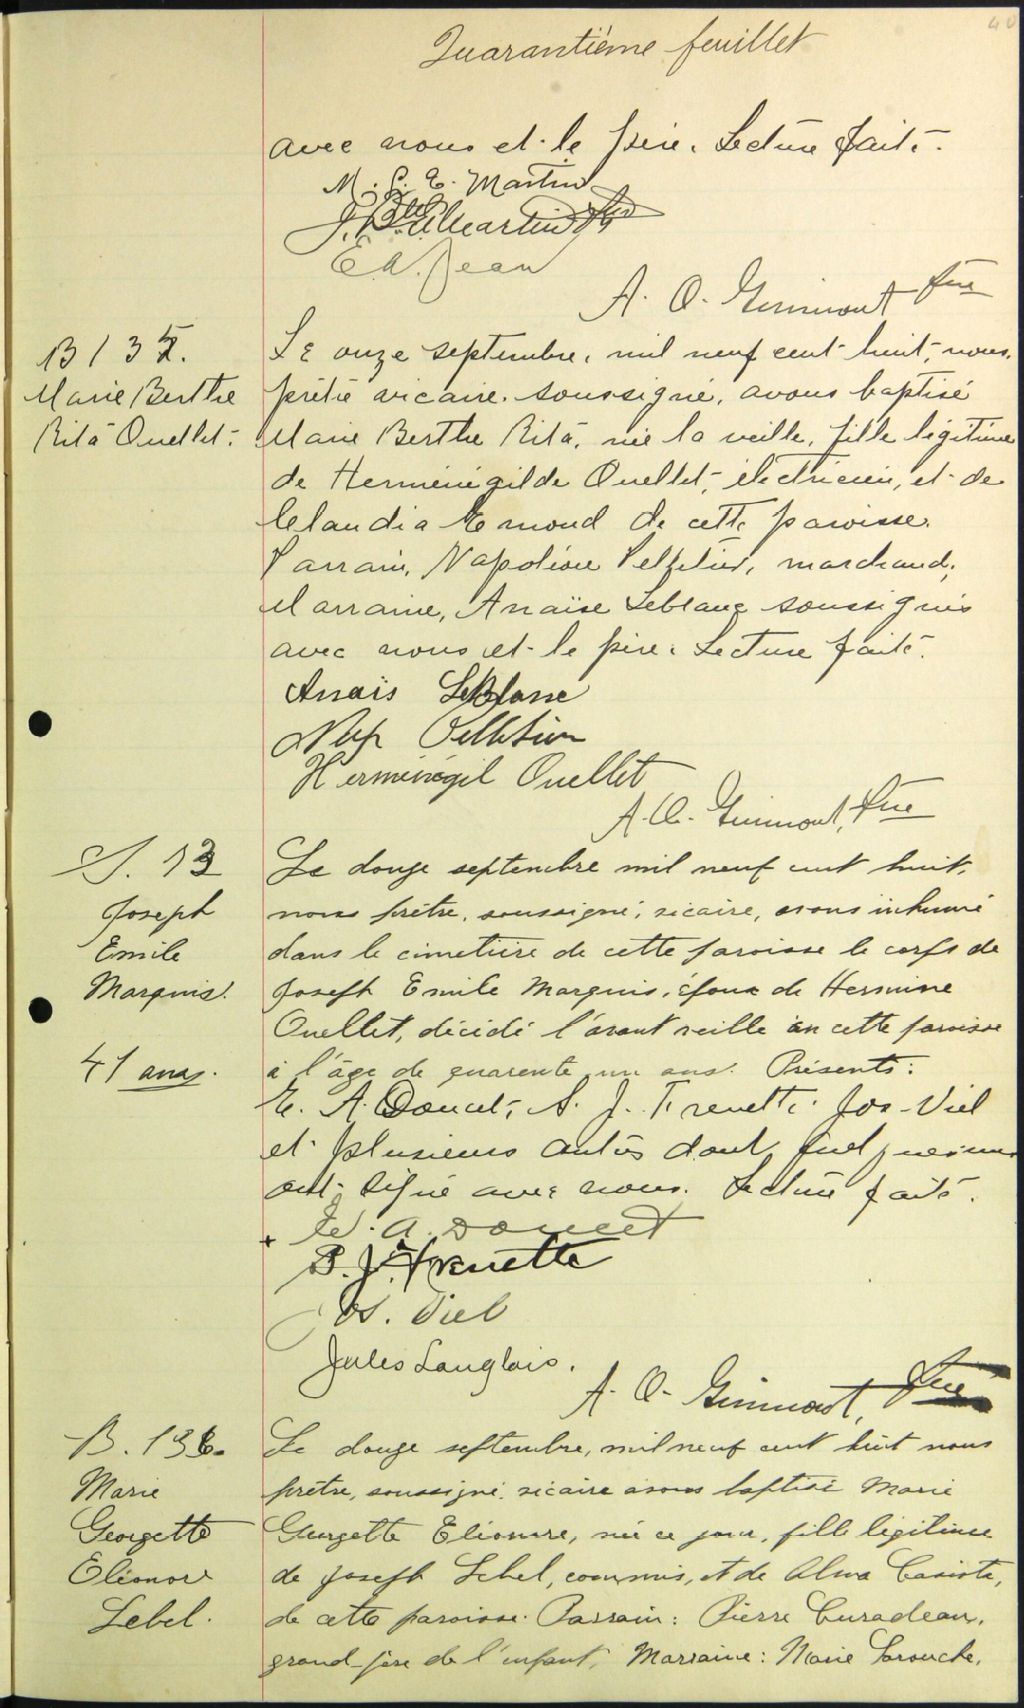 40
Quarantième feuillet
avec nous et le père. Lecture faite.
M. L. E. Martin
J. Bte Martin
E. A. Jean
A. O. Guimont Ptre
B 135.
Marie Berthe
Rita Ouellet.
Le onze septembre, mil neuf cent huit, nous,
prêtre vicaire soussigné, avons baptisé
Marie Berthe Rita, née la veille, fille légitime
de Herménégilde Ouellet, électricien, et de
Claudia Emond de cette paroisse.
Parrain, Napoléon Pelletier, marchand,
Marraine, Anaïse Leblanc soussignés
avec nous et le père. Lecture faite.
Anaïs LeBlanc
Nap Pelletier
Herménégil Ouellet
A. O. Guimont, Ptre
S. 13
Joseph
Emile
Marquis.
41 ans.
Le douze septembre mil neuf cent huit,
nous prêtre, soussigné, vicaire, avons inhumé
dans le cimetière de cette paroisse le corps de
Joseph Emile Marquis, époux de Hermine
Ouellet, décédé l'avant veille en cette paroisse
à l'âge de quarente un ans. Présents:
E. A. Doucet, S. J. Frenette, Jos Viel
et plusieurs autres dont quelques uns
ont signé avec nous. Lecture faite.
+ A. Doucet
J. Frenette
Jos. Viel
Jules Langlois.
A. O. Guimont, Ptre
B. 136.
Marie
Georgette
Eléonore
Lebel.
Le douze septembre, mil neuf cent huit nous
prêtre, soussigné, vicaire avons baptisé Marie
Georgette Eléonore, née ce jour, fille légitime
de Joseph Lebel, commis, et de Alma
de cette paroisse. Parrain: Pierre
grand-père de l'enfant, Marraine: Marie Larouche,